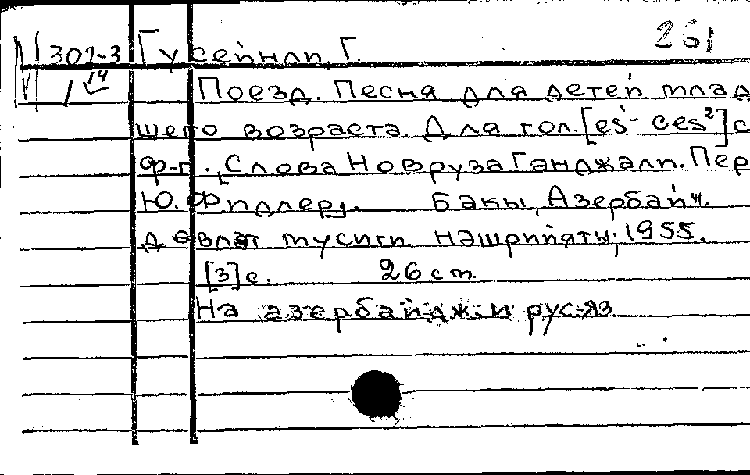 261
N 302-3 Гусейнли, Г.
V 1 14
Поезд. Песня для детей млад
шего возраста. Для гол. [es¹- ces²] с
ф-п., [Слова Новруза Ганджали. Пер
Ю. Фидлер]. Бакы, Азербайч.
девлет мусиги нашриййаты, 1955.
[3] с. 26 см
На азербайдж. и рус. яз